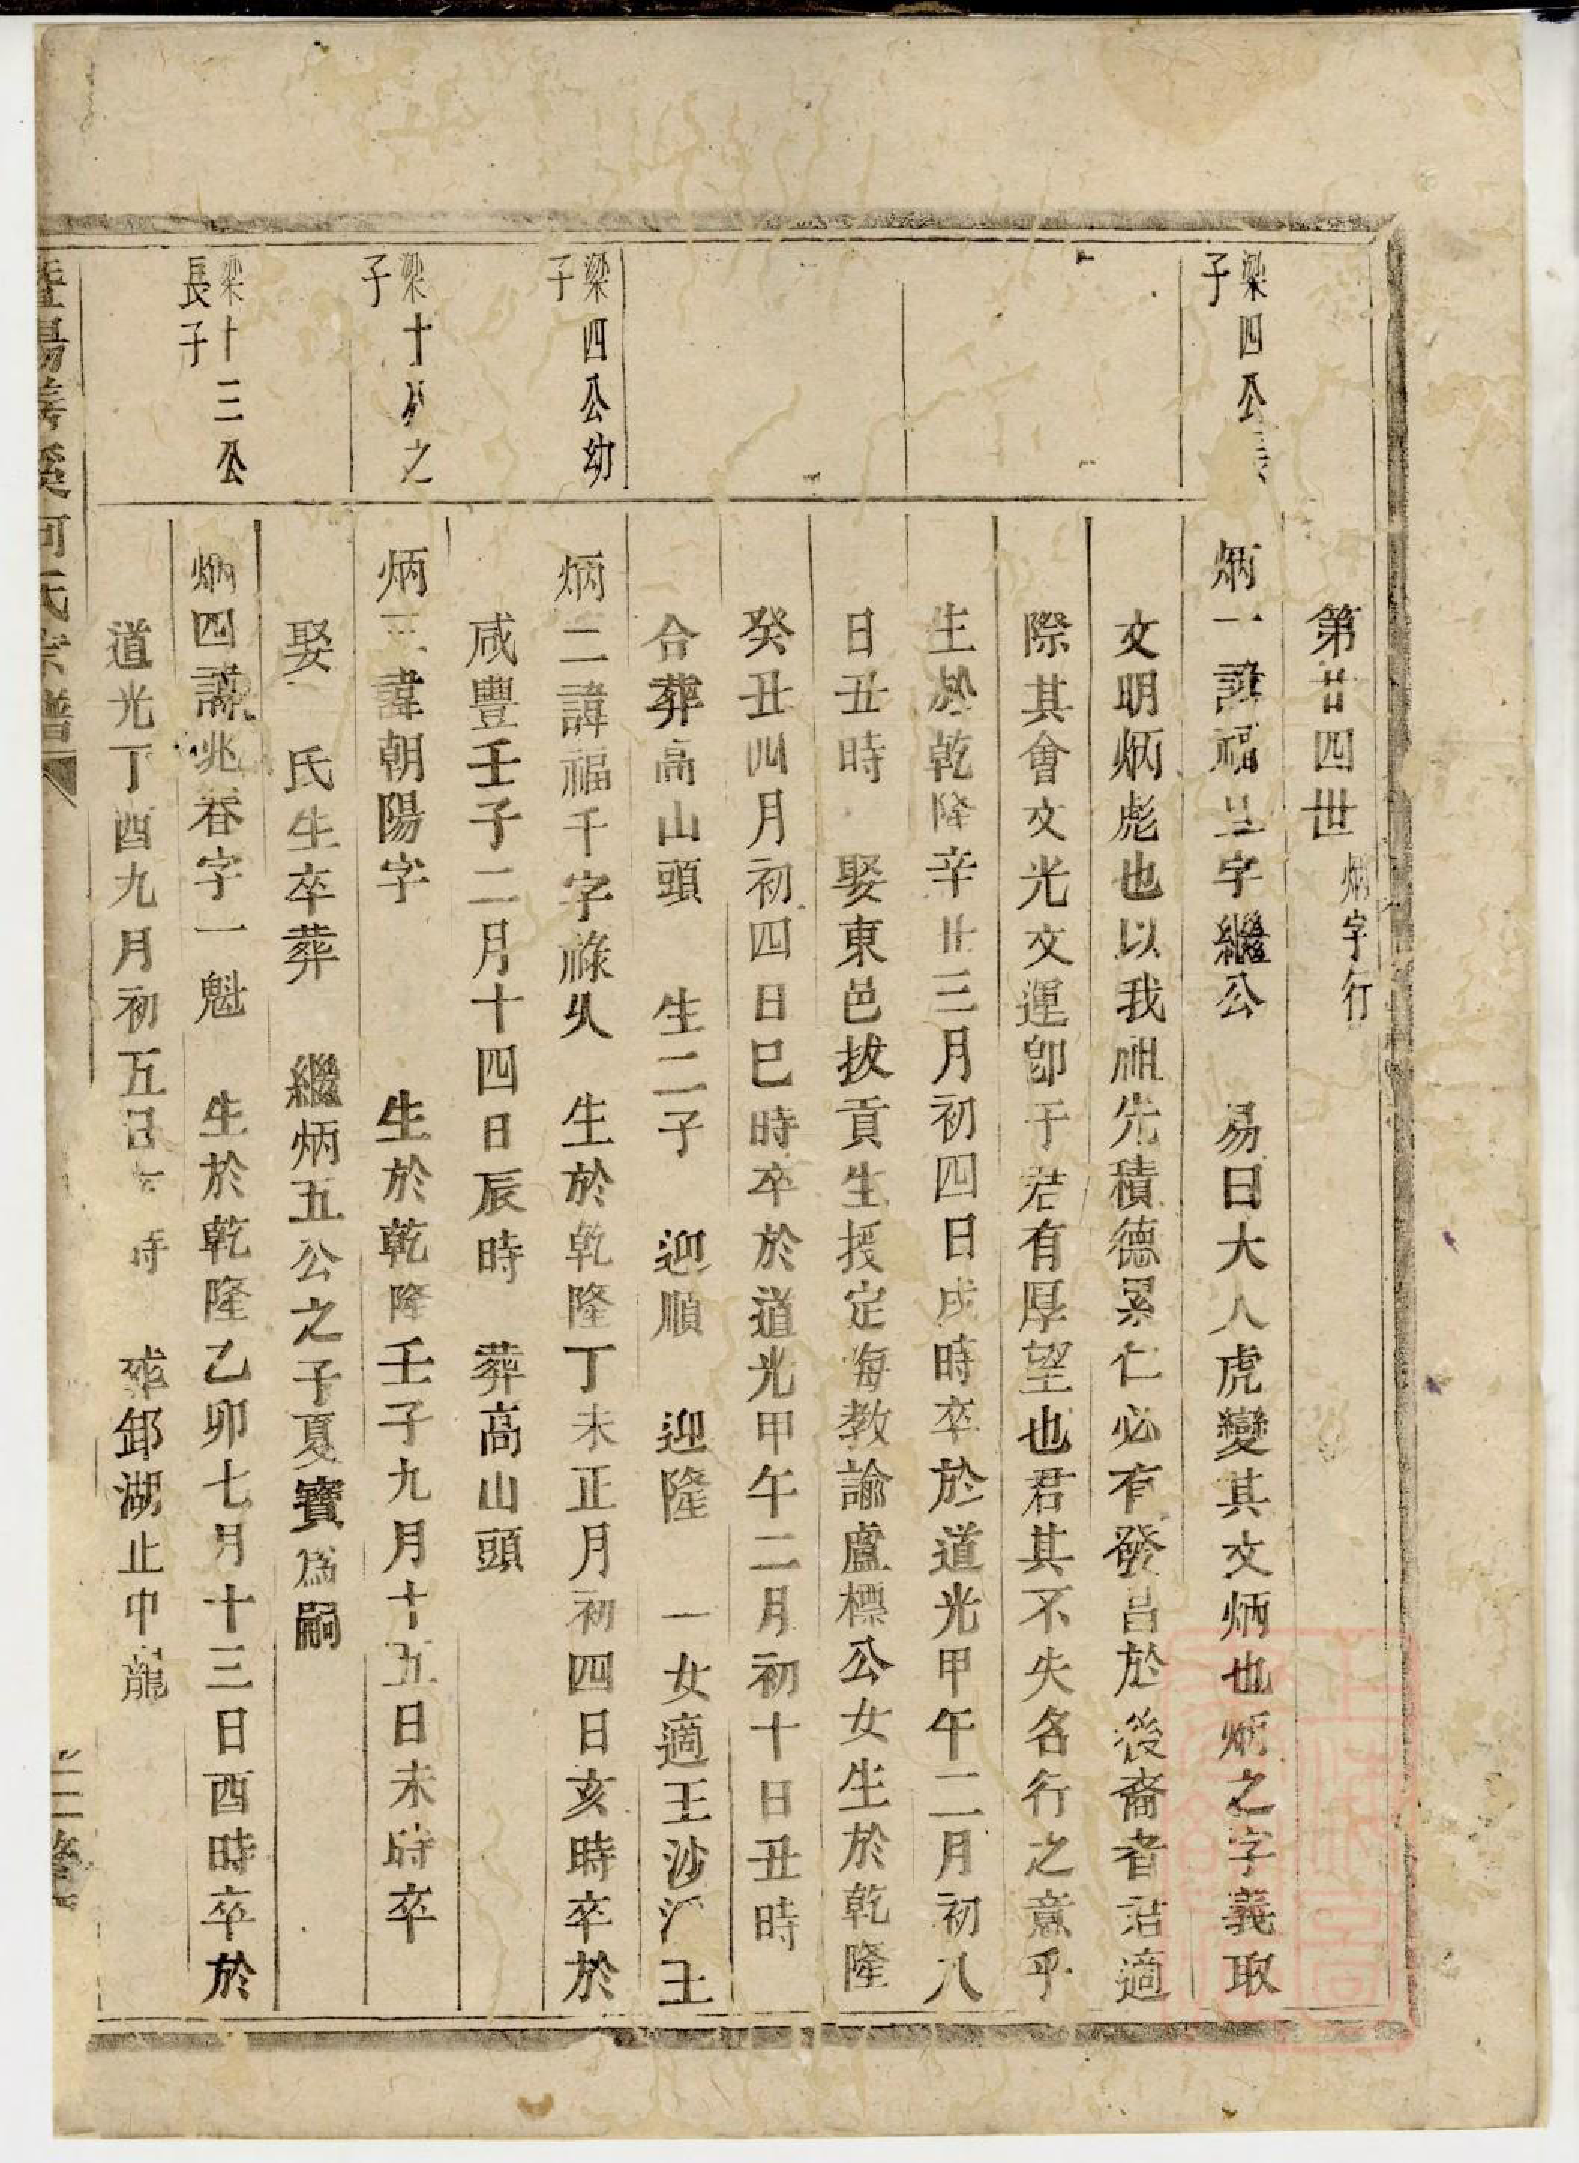 第廿四世 炳字行
梁四公長子
炳一諱福 字繼公 易曰大人虎變其文炳也炳之字義取
文明炳彪也以我祖先積德累仁必有發昌於後裔者詁適
際其會文光文運卽于君有厚望也君其不失名行之意乎
生於乾隆辛丑三月初四日戌時卒於道光甲午二月初八
日丑時 娶東邑拔貢生授定海教諭盧標公女生於乾隆
癸丑四月初四日巳時卒於道光甲午二月初十日丑時
合葬高山頭 生二子 迎順 迎隆 一女適王沙汇王
梁四公幼子
炳二諱福千字祿久 生於乾隆丁未正月初四日亥時卒於
咸豐壬子二月十四日辰時 葬高山頭
梁十八之子
炳三諱朝陽字 生於乾隆壬子九月十五日未時卒
娶 氏生卒葬 繼炳五公之子夏寶爲嗣
梁十三公長子
炳四諱兆春字一魁 生於乾隆乙卯七月十三日酉時卒於
道光丁酉九月初五日 時 葬邹湖止中龍
暨陽 溪何氏宗譜